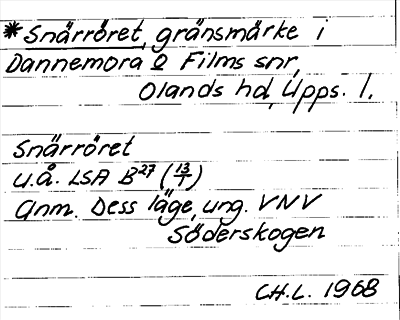 *Snärröret, gränsmärke i
Dannemora & Films snr,
Olands hd, Upps. l.
Snärröret
u.å. LSA B27 (13/1)
Anm. Dess läge, ung. VNV
Söderskogen
CH.L. 1968